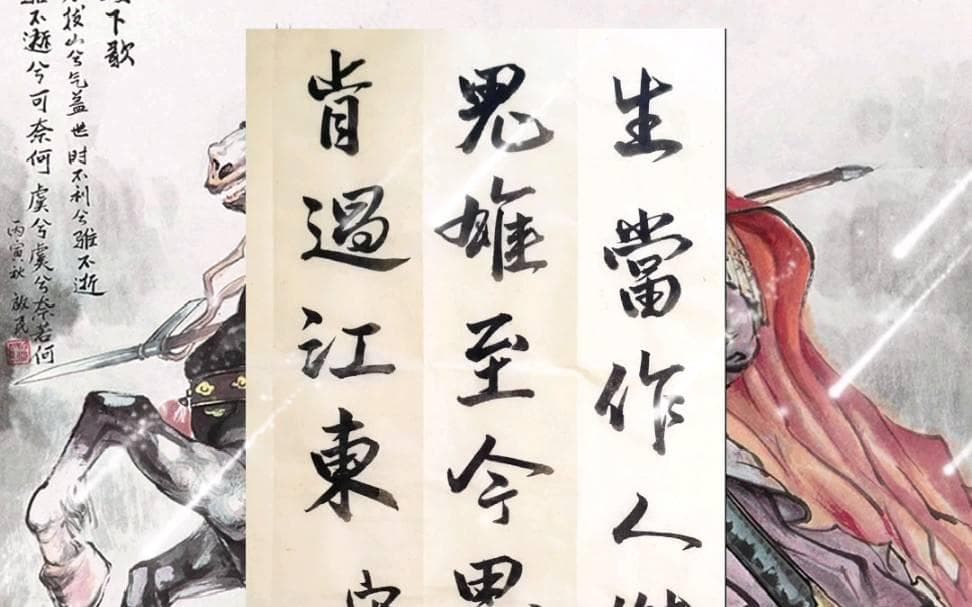 生當作人
鬼雄至今思
肯過江東
下歌
拔山兮气盖世时不利兮骓不逝
不逝兮可奈何虞兮虞兮奈若何
丙寅秋